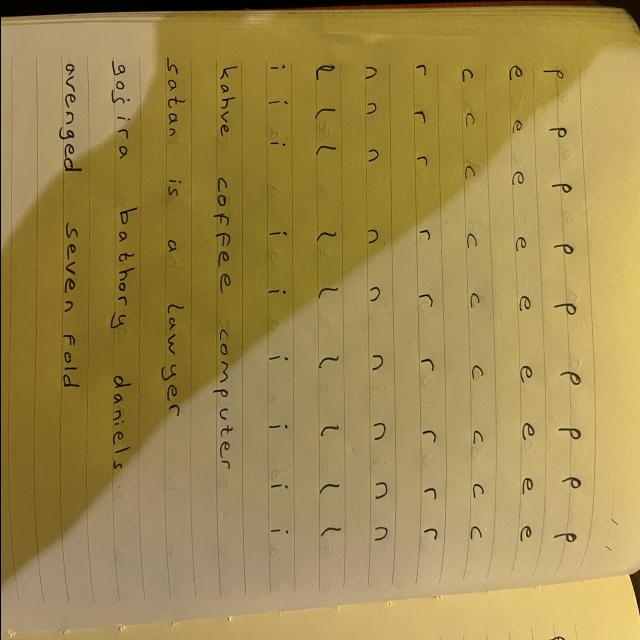 p p p p p p p p p
e e e e e e e e e
c c c c c c c c c
r r r r r r r r r
n n n n n n n n n
l l l l l l l l l
i i i i i i i i i
kahve coffee computer
satan is a lawyer
gojira bathory daniels
avenged seven fold